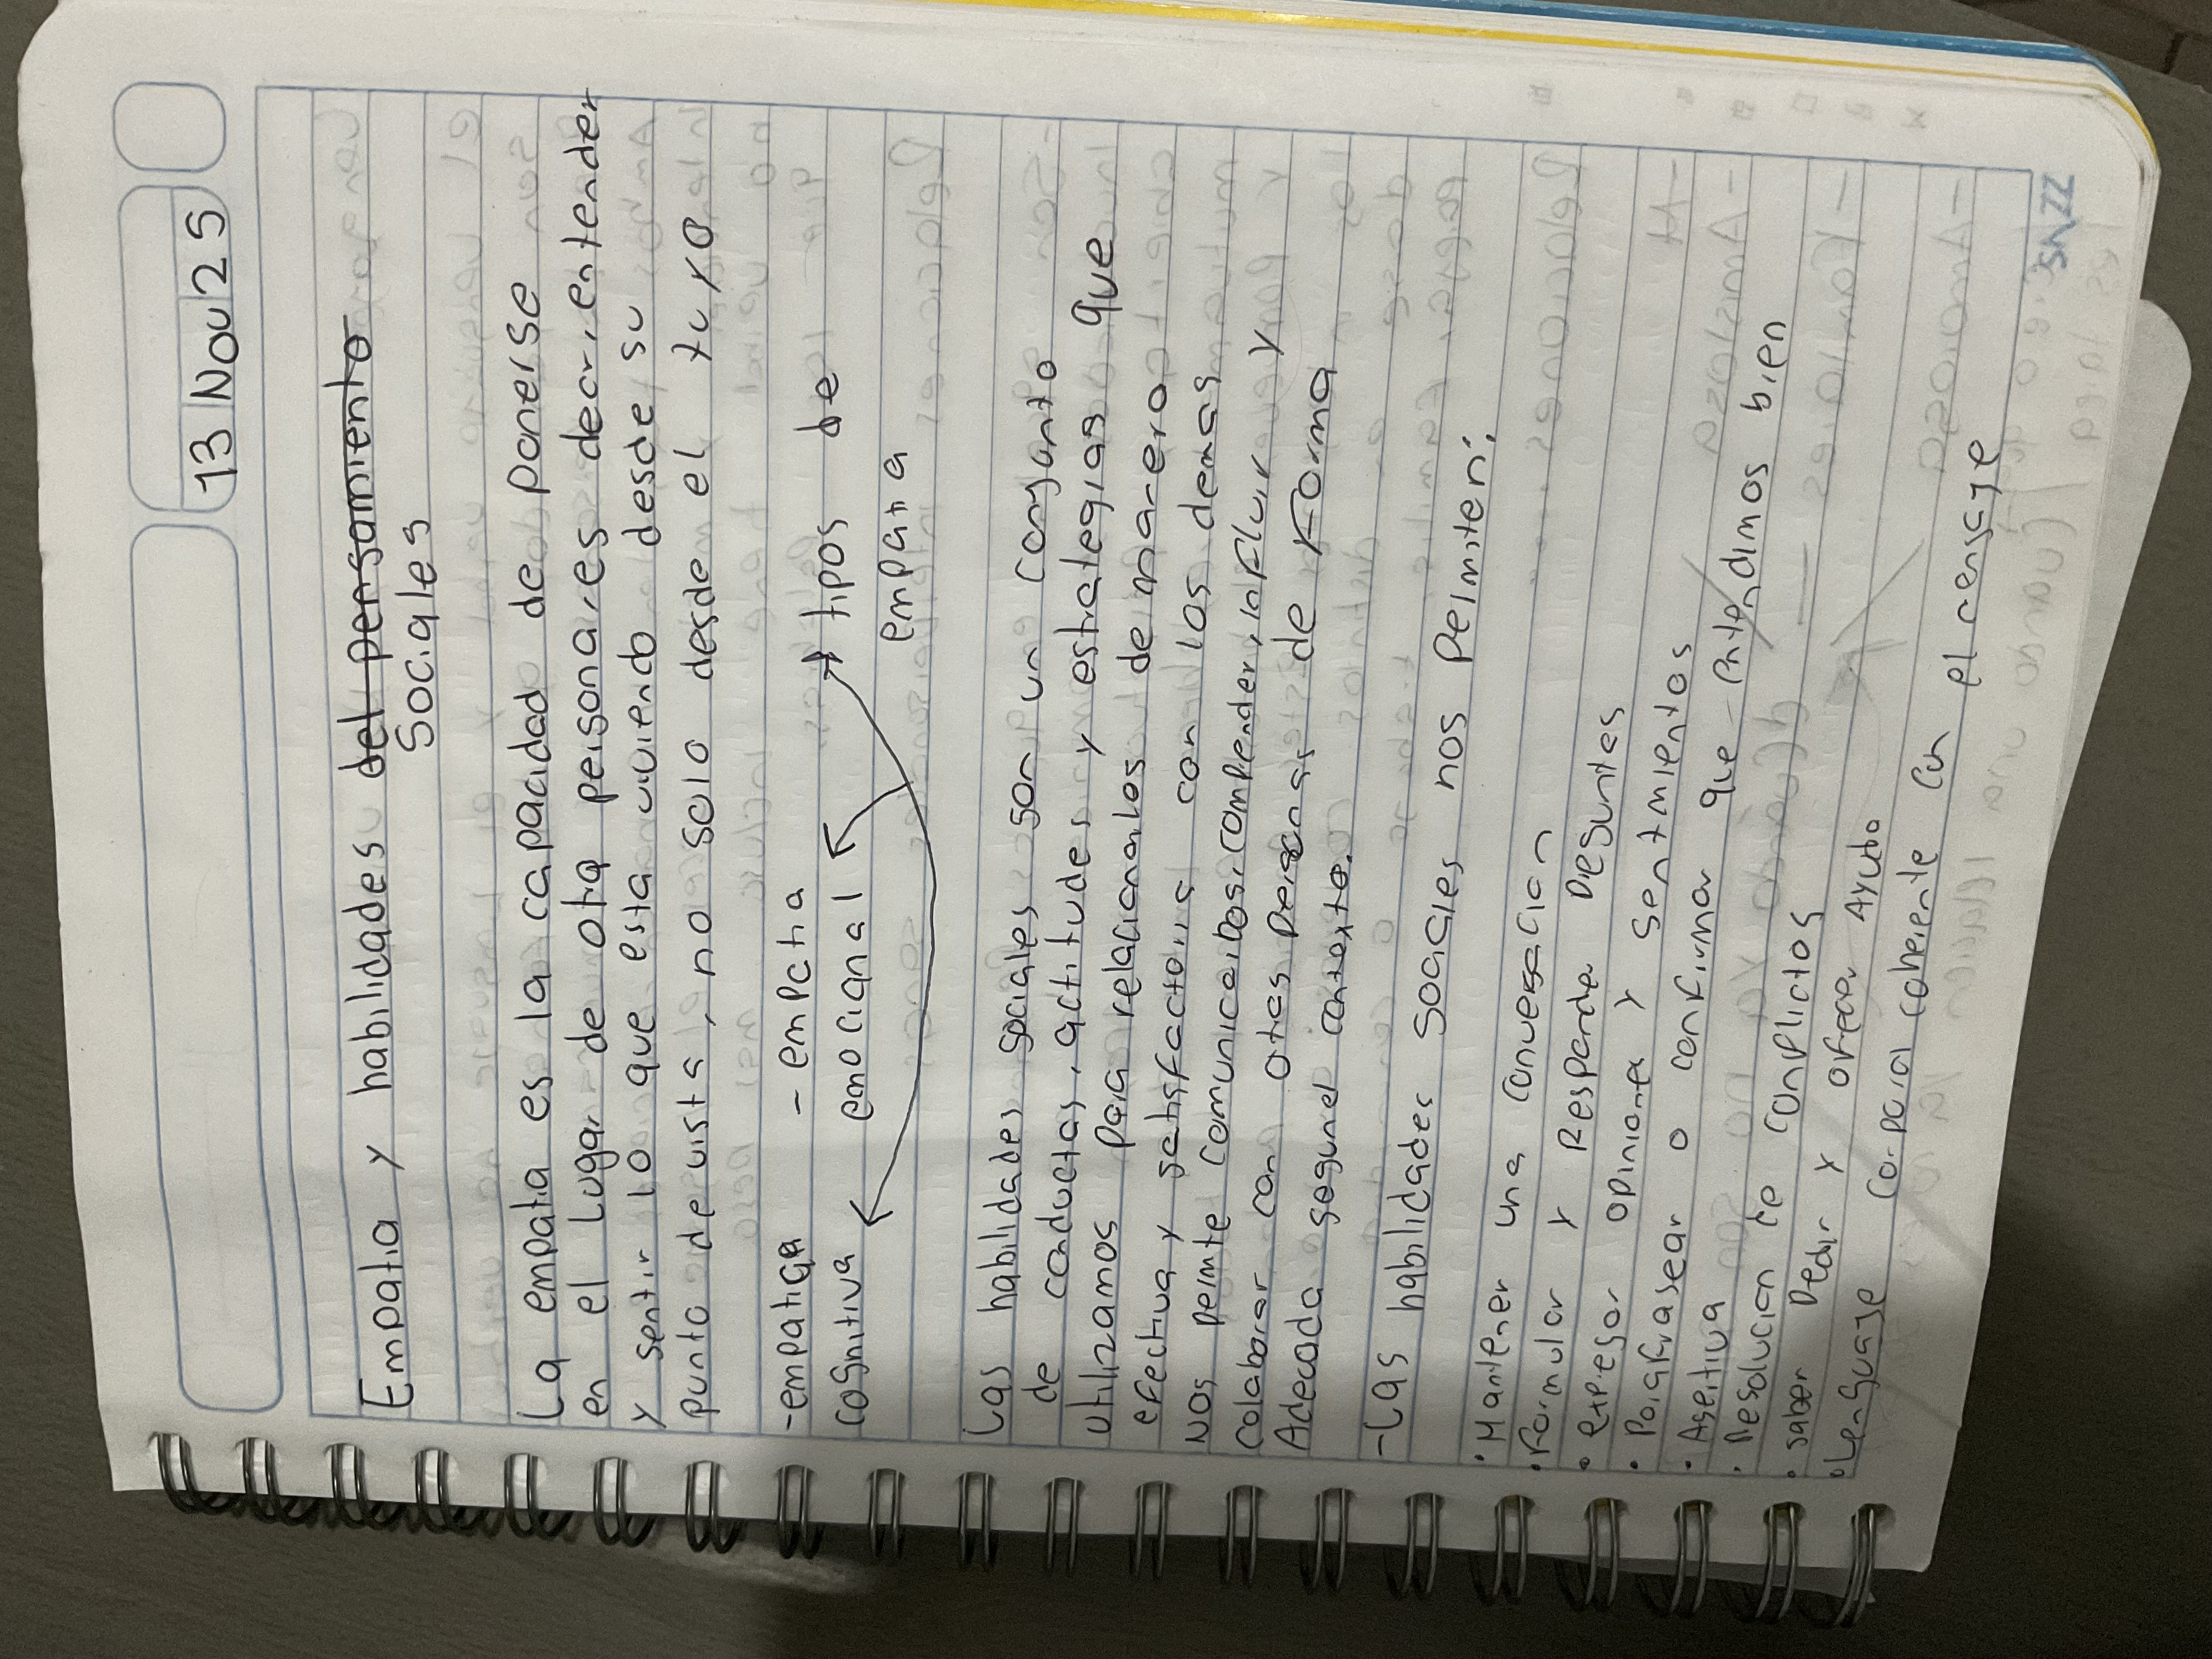 13 Nov 25
Empatia y habilidades del pensamiento
Sociales
La empatia es la capacidad de ponerse
en el lugar de otra persona, es decir, entender
y sentir lo que esta viviendo desde su
punto de vista, no solo desde el tuyo
-empatica -empatia → tipos de
cognitiva emocional empatia
Las habilidades sociales son un conjunto
de conductas, actitudes y estrategias que
utilizamos para relacionarlos de manera
efectiva y satisfactoria con los demas
Nos peimte comunicarbos, compender, influir y
Colaborar con otras personas de Forma
Adecada segun el contexto.
-Las habilidades sociales nos Peimiten:
• Mantener una Conversacion
• Formular y Responder Preguntas
• expresar opiniones y sentimientos
• Parafrasear o confirmar que entendimos bien
• Asertiva
• Resolucion de Conflictos
• saber Pedir y ofrecer Ayuda
• Lenguaje Corporal coherente con el mensaje